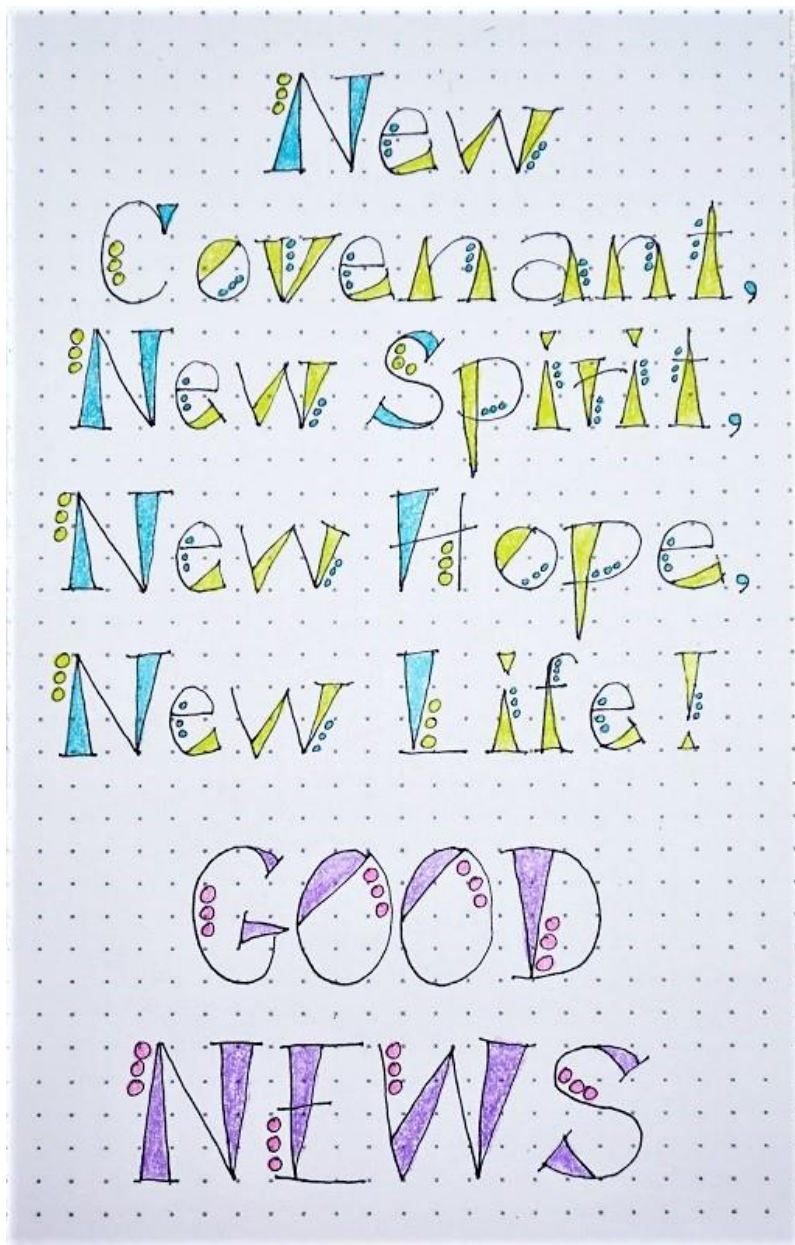 New
Covenant,
New Spirit,
New Hope,
New Life!
GOOD
NEWS